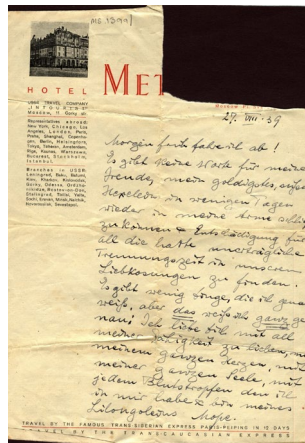 ME 1394
HOTEL MET
USSR TRAVEL COMPANY
"INTOURIST"
Moscow, 11 Gorky str.
Representatives abroad:
New York, Chicago, Los
Angeles, London, Paris,
Praha, Shanghai, Copenha-
gen, Berlin, Helsingfors,
Tokyo, Tabeez, Amsterdam,
Riga, Kaunas, Warszawa,
Bucarest, Stockholm,
Istanbul.
Branches in USSR:
Leningrad, Baku, Batumi,
Kiev, Kharkov, Kislovodsk,
Odessa,
Stalingrad, Tbilisi, Yalta,
Sochi, Erevan, Minsk, Nalchik,
Novorossiisk, Sevastopol.
27. VIII. 39
Morgen früh fahre ich ab!
Es gibt keine Worte für meine
Freude, mein goldigstes, süßes
in wenigen Tagen
wieder in meine Arme
zu können & Entschädigung für
all die harte unerträgliche
Trennungszeit in unseren
Liebkosungen zu finden.
Es gibt wenig Dinge, die ich genau
weiß, aber das weiß ich ganz ge-
nau: Ich liebe Dich mit all
meiner Fähigkeit zu lieben, mit
meinem ganzen Herzen, mit
meiner ganzen Seele, mit
jedem Blutstropfen den ich
in mir habe & bin meines
TRAVEL BY THE FAMOUS TRANS-SIBERIAN EXPRESS PARIS-PEIPING IN 12 DAYS
TRAVEL BY THE TRANSCAUCASIAN EXPRESS